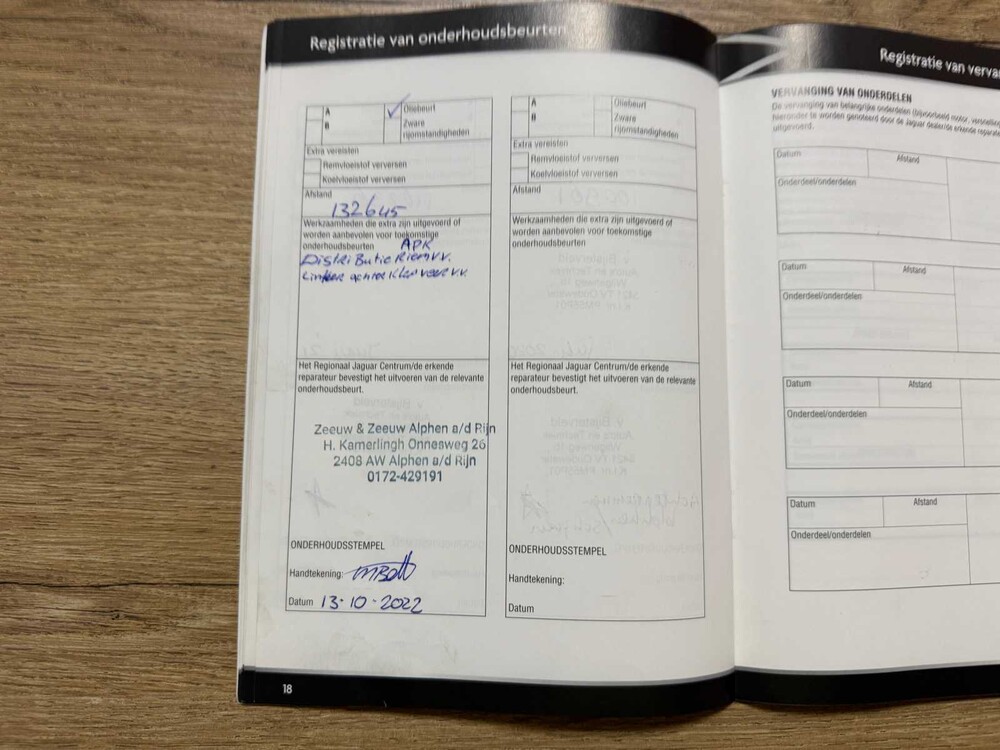 Registratie van onderhoudsbeurten
A
B
Oliebeurt
Zware rijomstandigheden
Extra vereisten
Remvloeistof verversen
Koelvloeistof verversen
Afstand
132645
Werkzaamheden die extra zijn uitgevoerd of
worden aanbevolen voor toekomstige
onderhoudsbeurten APK
Distributie Riem v.v.
Linker achter veer v.v.
Het Regionaal Jaguar Centrum/de erkende
reparateur bevestigt het uitvoeren van de relevante
onderhoudsbeurt.
Zeeuw & Zeeuw Alphen a/d Rijn
H. Kamerlingh Onnesweg 26
2408 AW Alphen a/d Rijn
0172-429191
ONDERHOUDSSTEMPEL
Handtekening:
Datum 13-10-2022
A
B
Oliebeurt
Zware
rijomstandigheden
Extra vereisten
Remvloeistof verversen
Koelvloeistof verversen
Afstand
Werkzaamheden die extra zijn uitgevoerd of
worden aanbevolen voor toekomstige
onderhoudsbeurten
Het Regionaal Jaguar Centrum/de erkende
reparateur bevestigt het uitvoeren van de relevante
onderhoudsbeurt.
ONDERHOUDSSTEMPEL
Handtekening:
Datum
18
Registratie van verva
VERVANGING VAN ONDERDELEN
De vervanging van belangrijke onderdelen (bijvoorbeeld motor, versnelling
hieronder te worden genoteerd door de Jaguar dealer/de erkende repara
uitgevoerd.
Datum Afstand
Onderdeel/onderdelen
Datum Afstand
Onderdeel/onderdelen
Datum Afstand
Onderdeel/onderdelen
Datum Afstand
Onderdeel/onderdelen